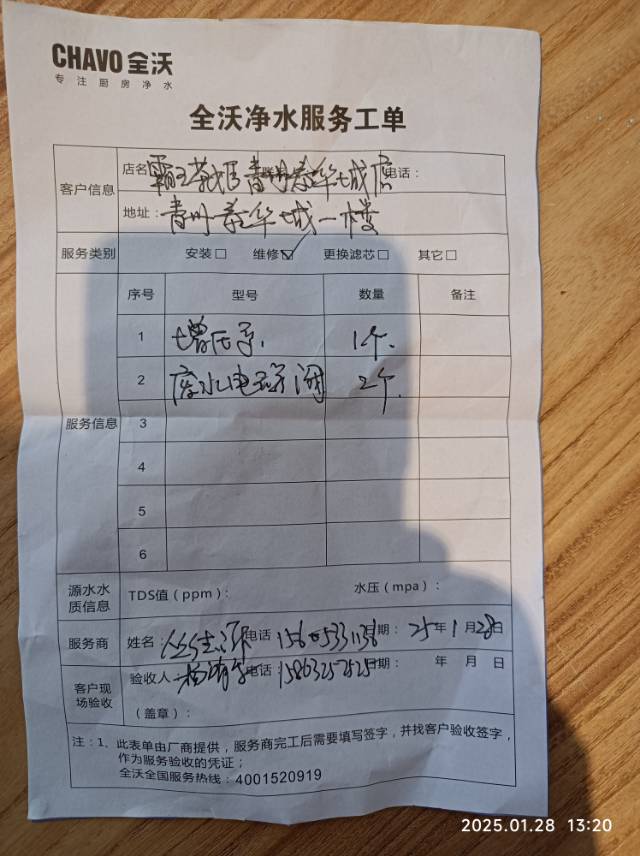 CHAVO 全沃
专注厨房净水
全沃净水服务工单
客户信息
店名 霸王茶姬青州泰华城店 电话：
地址：青州泰华城一楼
服务类别 安装□ 维修☑ 更换滤芯□ 其它□
服务信息
序号 型号 数量 备注
1 增压泵 1个
2 废水电磁阀 2个
3
4
5
6
源水水质信息 TDS值（ppm）： 水压（mpa）：
服务商 姓名： 电话 日期：25年1月28日
客户现场验收 验收人： 电话 日期： 年 月 日
（盖章）：
注：1、此表单由厂商提供，服务商完工后需要填写签字，并找客户验收签字，
作为服务验收的凭证；
全沃全国服务热线：4001520919
2025.01.28 13:20